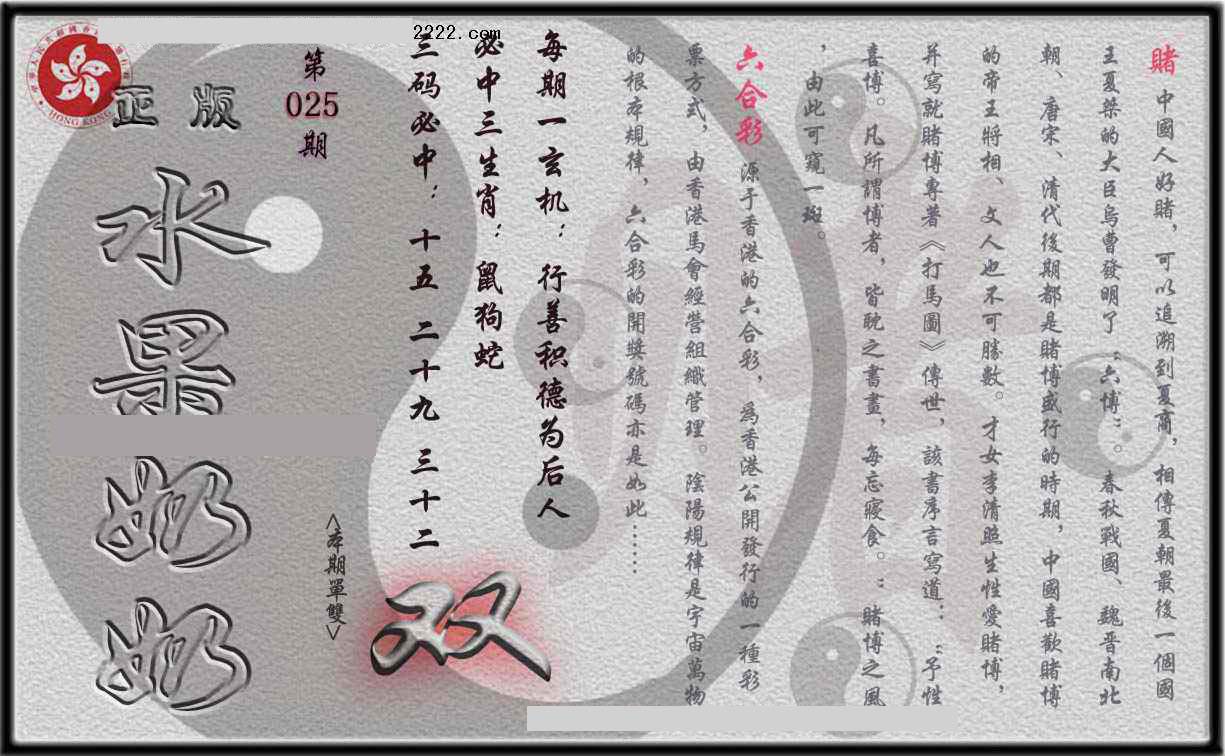 賭 中國人好賭，可以追溯到夏商，相傳夏朝最後一個國
王夏桀的大臣烏曹發明了“六博”。春秋戰國、魏晋南北
朝、唐宋、清代後期都是賭博盛行的時期，中國喜歡賭博
的帝王將相、文人也不可勝數。才女李清照生性愛賭博，
并寫就賭博專著《打馬圖》傳世，該書序言寫道：“予性
喜博。凡所謂博者，皆耽之書畫，每忘寢食。”賭博之風
，由此可窺一斑。
六合彩 源于香港的六合彩，爲香港公開發行的一種彩
票方式，由香港馬會經營組織管理。陰陽規律是宇宙萬物
的根本規律，六合彩的開獎號碼亦是如此……
每期一玄机：行善积德为后人
必中三生肖：鼠狗蛇
三码必中：十五 二十九 三十二
2222.com
双
<本期單雙>
第
025
期
正版
水果奶奶
HONG KONG